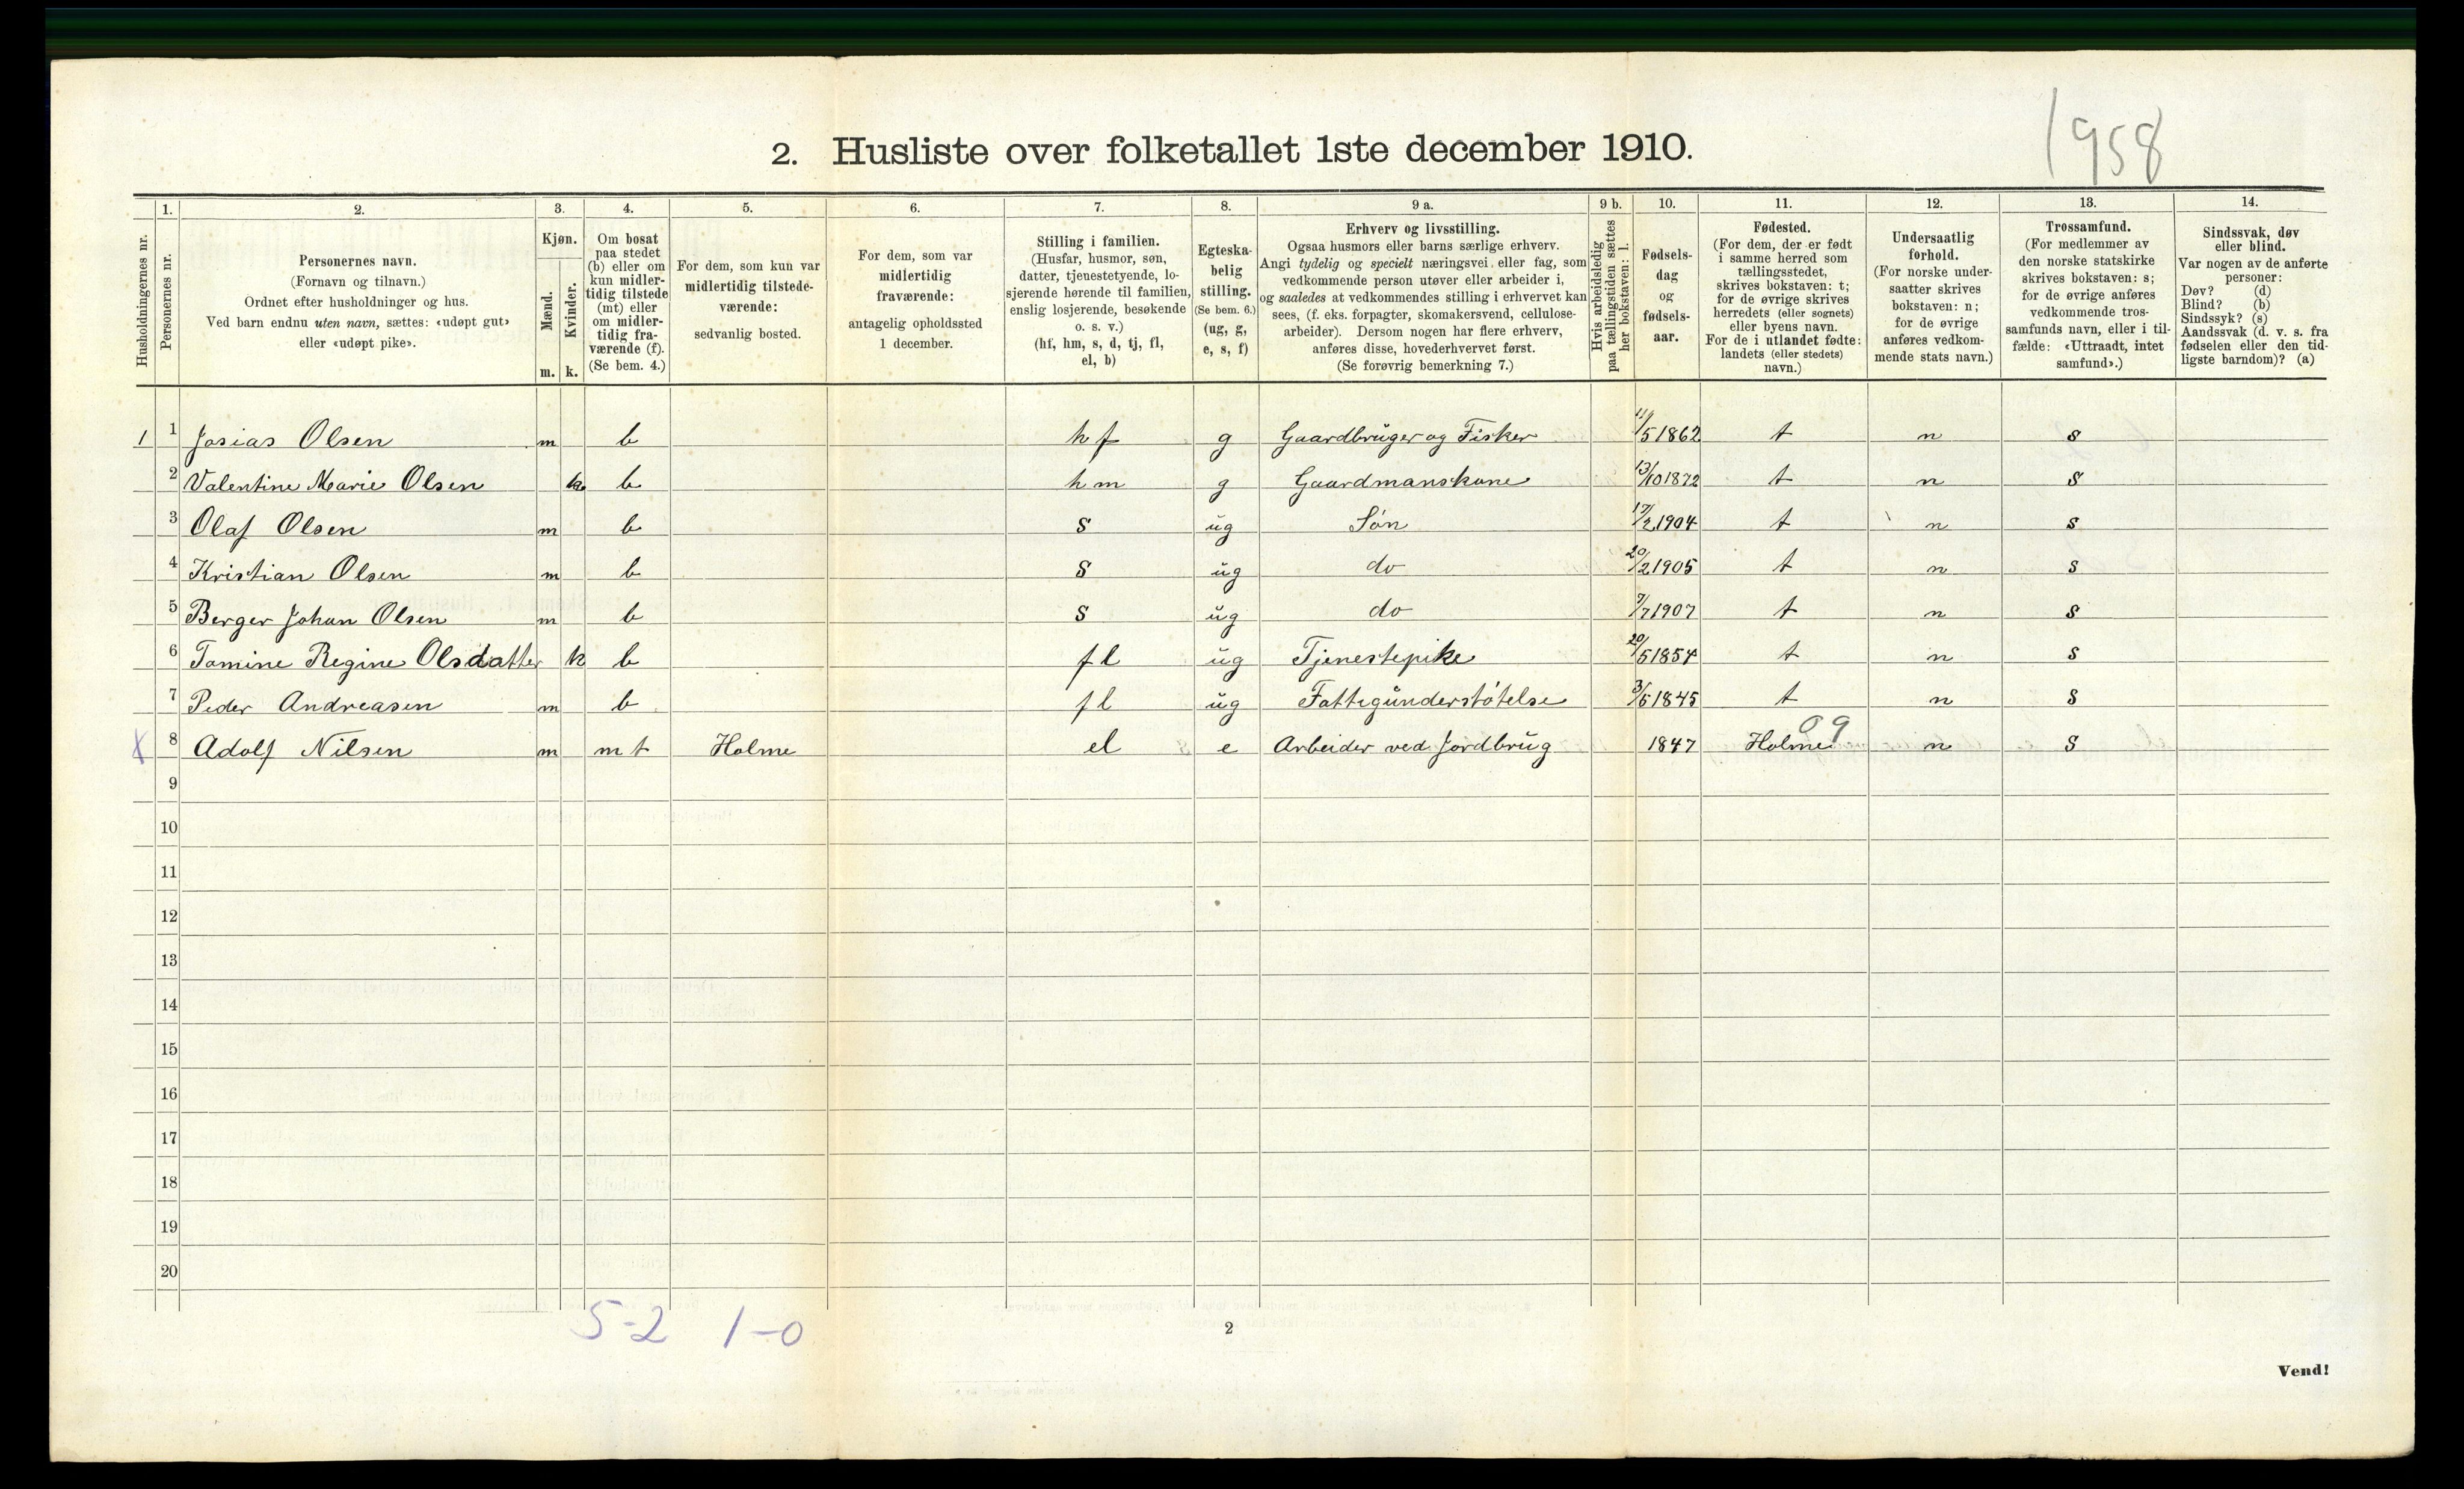 1958
2. Husliste over folketallet 1ste december 1910.
Husholdningernes nr.
1.
Personernes nr.
2.
Personernes navn.
(Fornavn og tilnavn.)
Ordnet efter husholdninger og hus.
Ved barn endnu uten navn, sættes: «udøpt gut»
eller «udøpt pike».
3.
Kjøn.
Mænd.
Kvinder.
m. k.
4.
Om bosat
paa stedet
(b) eller om
kun midler-
tidig tilstede
(mt) eller
om midler-
tidig fra-
værende (f).
(Se bem. 4.)
5.
For dem, som kun var
midlertidig tilstede-
værende:
sedvanlig bosted.
6.
For dem, som var
midlertidig
fraværende:
antagelig opholdssted
1 december.
7.
Stilling i familien.
(Husfar, husmor, søn,
datter, tjenestetyende, lo-
sjerende hørende til familien,
enslig losjerende, besøkende
o. s. v.)
(hf, hm, s, d, tj, fl,
el, b)
8.
Egteska-
belig
stilling.
(Se bem. 6.)
(ug, g,
e, s, f)
9 a.
Erhverv og livsstilling.
Ogsaa husmors eller barns særlige erhverv.
Angi tydelig og specielt næringsvei eller fag, som
vedkommende person utøver eller arbeider i,
og saaledes at vedkommendes stilling i erhvervet kan
sees, (f. eks. forpagter, skomakersvend, cellulose-
arbeider). Dersom nogen har flere erhverv,
anføres disse, hovederhvervet først.
(Se forøvrig bemerkning 7.)
9 b.
Hvis arbeidsledig
paa tællingstiden sættes
her bokstaven: l.
10.
Fødsels-
dag
og
fødsels-
aar.
11.
Fødested.
(For dem, der er født
i samme herred som
tællingsstedet,
skrives bokstaven: t;
for de øvrige skrives
herredets (eller sognets)
eller byens navn.
For de i utlandet fødte:
landets (eller stedets)
navn.)
12.
Undersaatlig
forhold.
(For norske under-
saatter skrives
bokstaven: n;
for de øvrige
anføres vedkom-
mende stats navn.)
13.
Trossamfund.
(For medlemmer av
den norske statskirke
skrives bokstaven: s;
for de øvrige anføres
vedkommende tros-
samfunds navn, eller i til-
fælde: «Uttraadt, intet
samfund».)
14.
Sindssvak, døv
eller blind.
Var nogen av de anførte
personer:
Døv? (d)
Blind? (b)
Sindssyk? (s)
Aandssvak (d. v. s. fra
fødselen eller den tid-
ligste barndom)? (a)
1 1 Josias Olsen m b hf g Gaardbruger og Fisker 11/5 1862 t n s
2 Valentine Marie Olsen k b hm g Gaardmanskone 13/10 1872 t n s
3 Olaf Olsen m b s ug Són 17/2 1904 t n s
4 Kristian Olsen m b s ug do 20/2 1905 t n s
5 Berger Johan Olsen m b s ug do 7/7 1907 t n s
6 Tomine Regine Olsdatter k b fl ug Tjenestepike 20/5 1854 t n s
7 Peder Andreasen m b fl ug Fattigunderstótelse 3/5 1845 t n s
09
X 8 Adolf Nilsen m mt Holme el e Arbeider ved Jordbrug 1847 Holme n s
9
10
11
12
13
14
15
16
17
18
19
20
5-2 1-0
2
Vend!